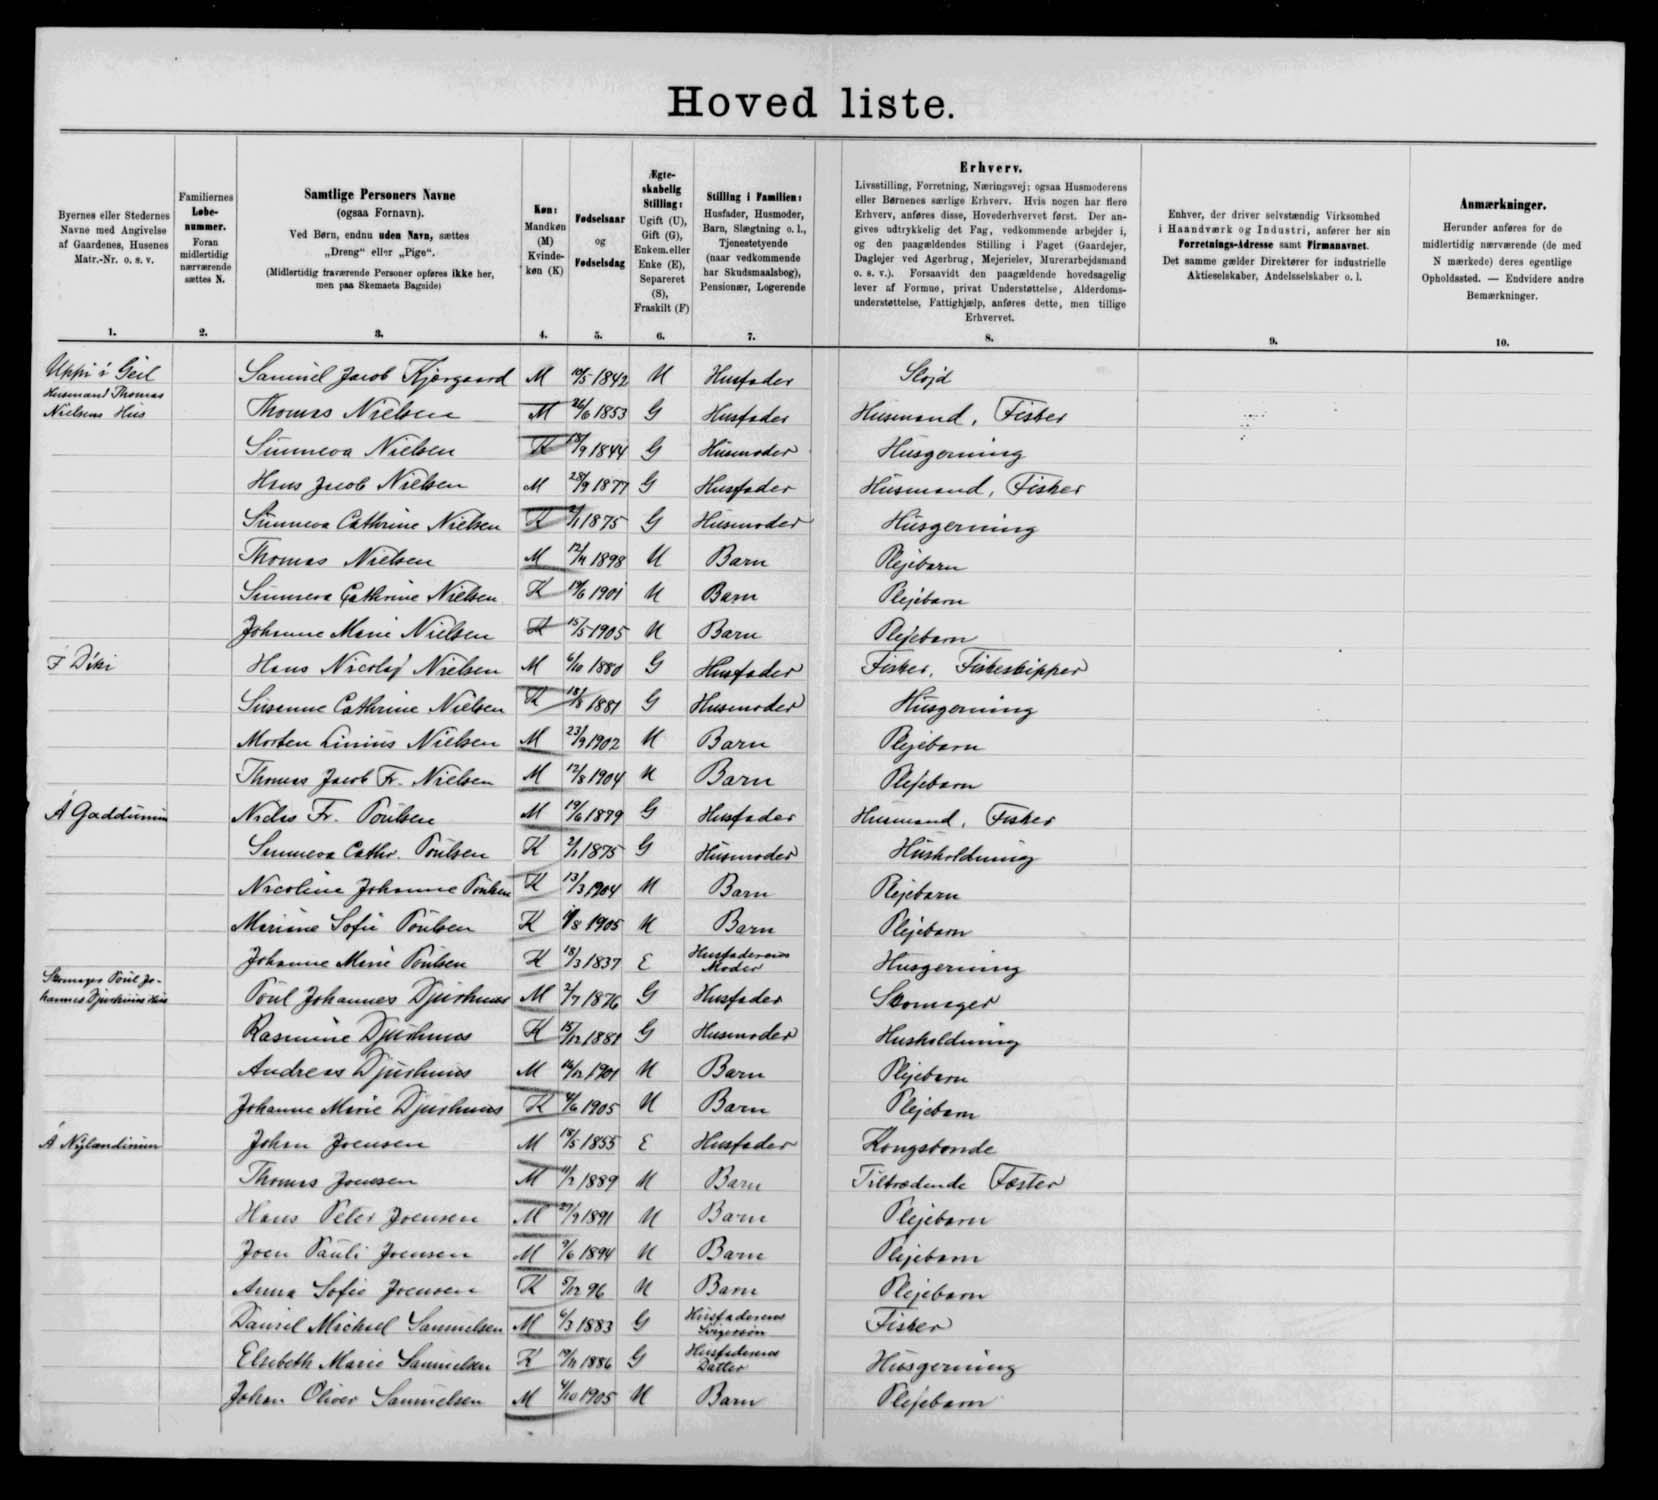 Hoved liste.
Byernes eller Stedernes Navne med Angivelse af Gaardenes, Husenes Matr.-Nr. o. s. v.
Familiernes Løbenummer. Foran midlertidig nærværende sættes N.
Samtlige Personers Navne (ogsaa Fornavn). Ved Børn, endnu uden Navn, sættes „Dreng“ eller „Pige“. (Midlertidig fraværende Personer opføres ikke her, men paa Skemaets Bagside)
Køn: Mandkøn (M) Kvindekøn (K)
Fødselsaar og Fødselsdag
Ægteskabelig Stilling: Ugift (U), Gift (G), Enkem. eller Enke (E), Separeret (S), Fraskilt (F)
Stilling i Familien: Husfader, Husmoder, Barn, Slægtning o. l., Tjenestetyende (naar vedkommende har Skudsmaalsbog), Pensionær, Logerende
Erhverv. Livsstilling, Forretning, Næringsvej; ogsaa Husmoderens eller Børnenes særlige Erhverv. Hvis nogen har flere Erhverv, anføres disse, Hovederhvervet først. Der angives udtrykkelig det Fag, vedkommende arbejder i, og den paagældendes Stilling i Faget (Gaardejer, Daglejer ved Agerbrug, Mejerielev, Murerarbejdsmand o. s. v.). Forsaavidt den paagældende hovedsagelig lever af Formue, privat Understøttelse, Alderdomsunderstøttelse, Fattighjælp, anføres dette, men tillige Erhvervet.
Enhver, der driver selvstændig Virksomhed i Haandværk og Industri, anfører her sin Forretnings-Adresse samt Firmanavnet. Det samme gælder Direktører for industrielle Aktieselskaber, Andelsselskaber o. l.
Anmærkninger. Herunder anføres for de midlertidig nærværende (de med N mærkede) deres egentlige Opholdssted. — Endvidere andre Bemærkninger.
1. 2. 3. 4. 5. 6. 7. 8. 9. 10.
Uppi i Geil Samuel Jacob Kjærgaard M 10/5 1842 U Husfader Sløjd
Husmand Thomas
Nielsens Hus Thomas Nielsen M 26/6 1853 G Husfader Husmand, Fisker
Sunneva Nielsen K 18/9 1844 G Husmoder Husgerning
Hans Jacob Nielsen M 28/9 1877 G Husfader Husmand, Fisker
Sunneva Cathrine Nielsen K 2/1 1875 G Husmoder Husgerning
Thomas Nielsen M 1898 U Barn Plejebarn
Sunneva Cathrine Nielsen K 19/6 1901 U Barn Plejebarn
Johanne Marie Nielsen K 15/5 1905 U Barn Plejebarn
Í Díki Hans Nicolaj Nielsen M 6/10 1880 G Husfader Fisker, Fiskeskipper
Susanne Cathrine Nielsen K 18/8 1881 G Husmoder Husgerning
Morten Linius Nielsen M 23/9 1902 U Barn Plejebarn
Thomas Jacob Fr. Nielsen M 12/8 1904 U Barn Plejebarn
Á Gaddunum Niels Fr. Poulsen M 19/6 1879 G Husfader Husmand, Fisker
Sunneva Cathr. Poulsen K 2/1 1875 G Husmoder Husholdning
Nicoline Johanne Poulsen K 13/3 1904 U Barn Plejebarn
Mariane Sofie Poulsen K 1905 U Barn Plejebarn
Johanne Marie Poulsen K 18/3 1837 E Husfaderens Moder Husgerning
Skomager Poul Jo-
hannes Djurhuus Hus Poul Johannes Djurhuus M 2/7 1876 G Husfader Skomager
Rasmine Djurhuus K 15/12 1881 G Husmoder Husholdning
Andreas Djurhuus M 16/12 1901 U Barn Plejebarn
Johanne Marie Djurhuus K 4/6 1905 U Barn Plejebarn
Á Nýlandinum Johan Joensen M 18/5 1855 E Husfader Kongsbonde
Thomas Joensen M 1889 U Barn Tiltrædende Fæster
Hans Peter Joensen M 27/9 1891 U Barn Plejebarn
Joen Pauli Joensen M 1894 U Barn Plejebarn
Anna Sofie Joensen K 5/12 96 U Barn Plejebarn
Daniel Michael Samuelsen M 6/3 1883 G Husfaderens Svigersøn Fisker
Elsebeth Marie Samuelsen K 1886 G Husfaderens Datter Husgerning
Johan Oliver Samuelsen M 4/10 1905 U Barn Plejebarn